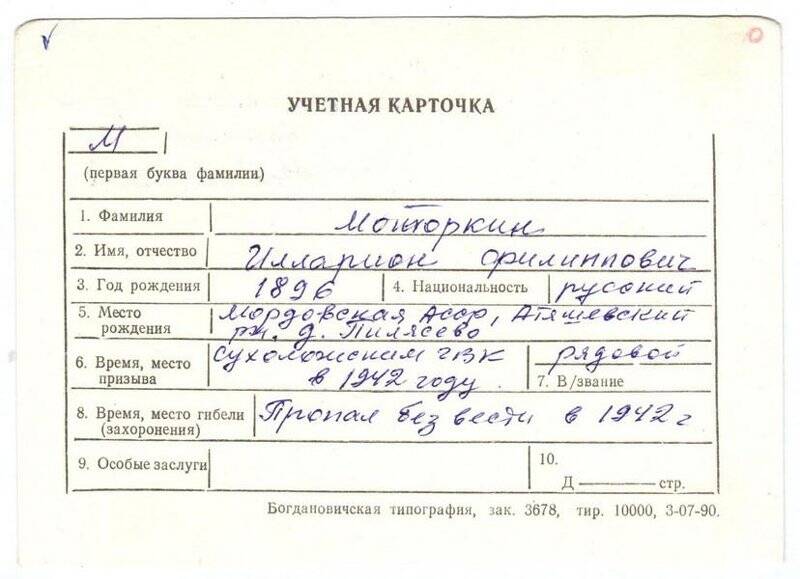 УЧЕТНАЯ КАРТОЧКА
М
(первая буква фамилии)
1. Фамилия Мотторкин
2. Имя, отчество Илларион Филиппович
3. Год рождения 1896 4. Национальность русский
5. Место рождения Мордовская Асср, Атяшевский
рн. д. Пилясево
6. Время, место призыва Сухоложским ГВК
в 1942 году
рядовой
7. В/звание
8. Время, место гибели (захоронения) Пропал без вести в 1942 г
9. Особые заслуги
10.
Д — стр.
Богдановичская типография, зак. 3678, тир. 10000, 3-07-90.